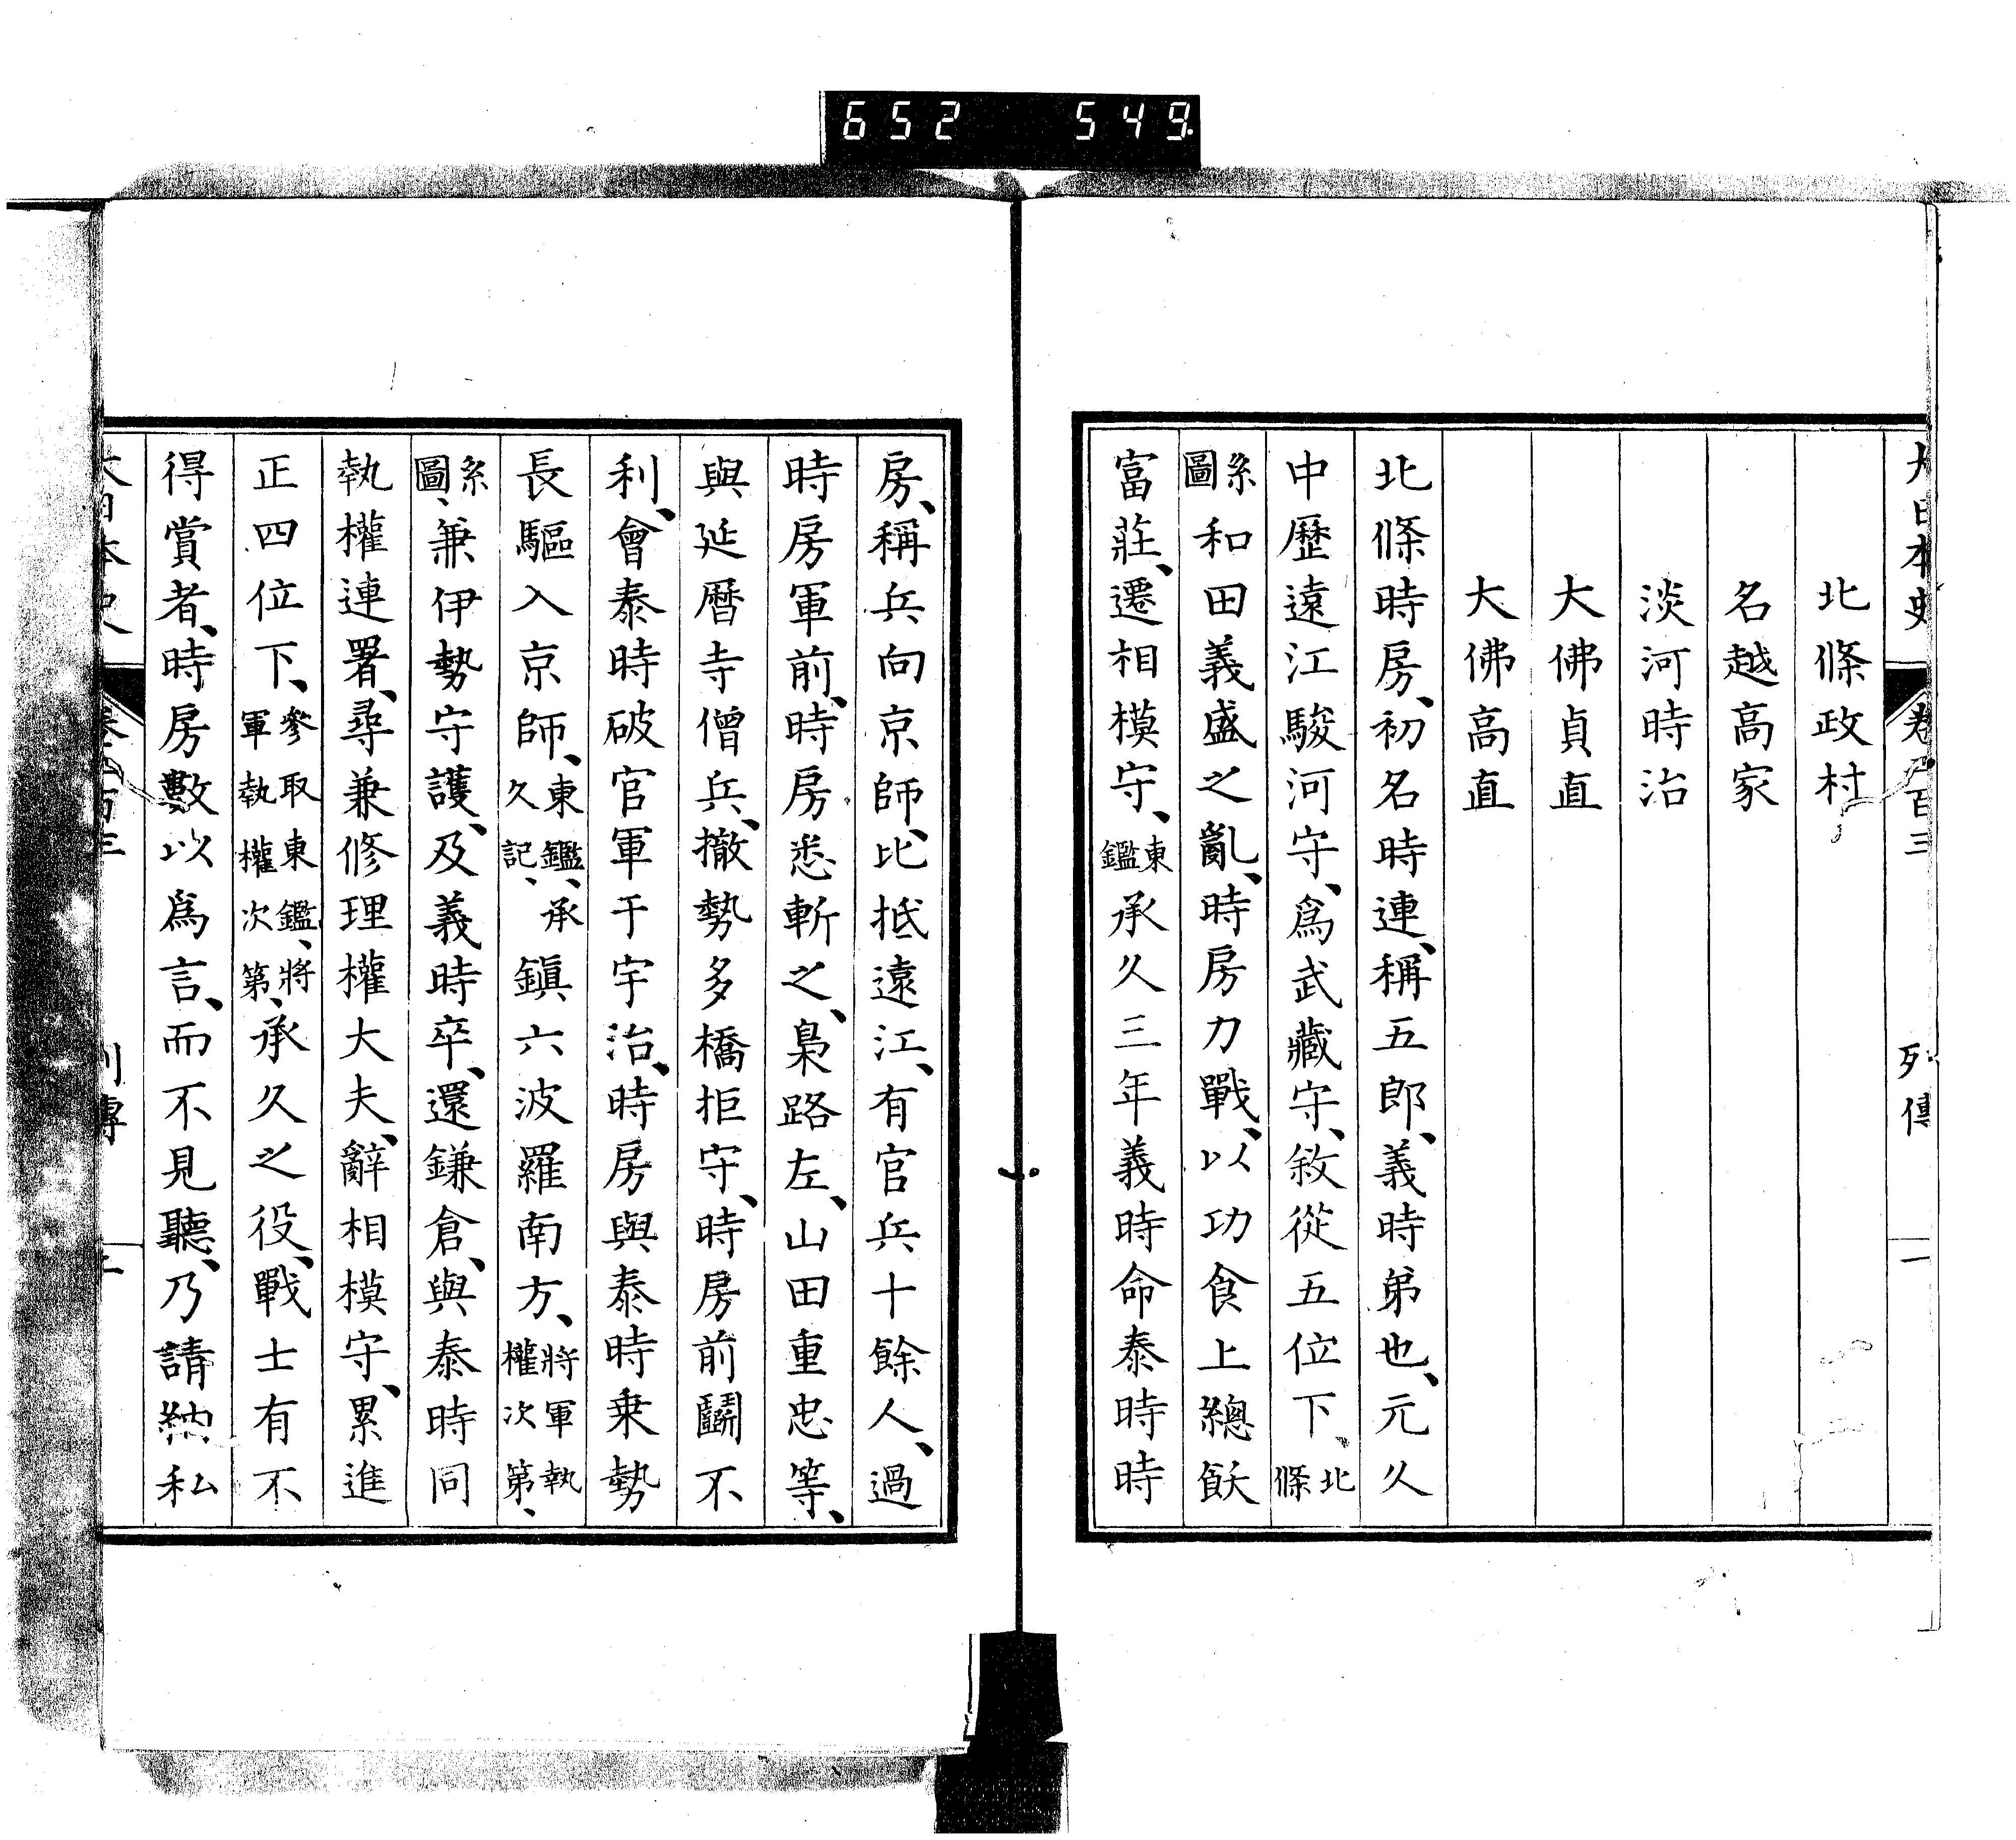 652 549
大日本史 卷二百三 列傳 一
北條政村
名越高家
淡河時治
大佛貞直
大佛高直
北條時房、初名時連、稱五郎、義時弟也、元久
中歷遠江駿河守、爲武藏守、敘從五位下、北條
系圖和田義盛之亂、時房力戰、以功食上總飫
富莊、遷相模守、東鑑承久三年義時命泰時時
房、稱兵向京師、比抵遠江、有官兵十餘人、過
時房軍前、時房悉斬之、梟路左、山田重忠等、
與延曆寺僧兵、撤勢多橋拒守、時房前鬬不
利、會泰時破官軍于宇治、時房與泰時乘勢
長驅入京師、東鑑、承久記、鎭六波羅南方、將軍執權次第、
系圖、兼伊勢守護、及義時卒、還鎌倉、與泰時同
執權連署、尋兼修理權大夫、辭相模守、累進
正四位下、參取東鑑、將軍執權次第、承久之役、戰士有不
得賞者、時房數以爲言、而不見聽、乃請納私
大日本史 卷二百三 列傳